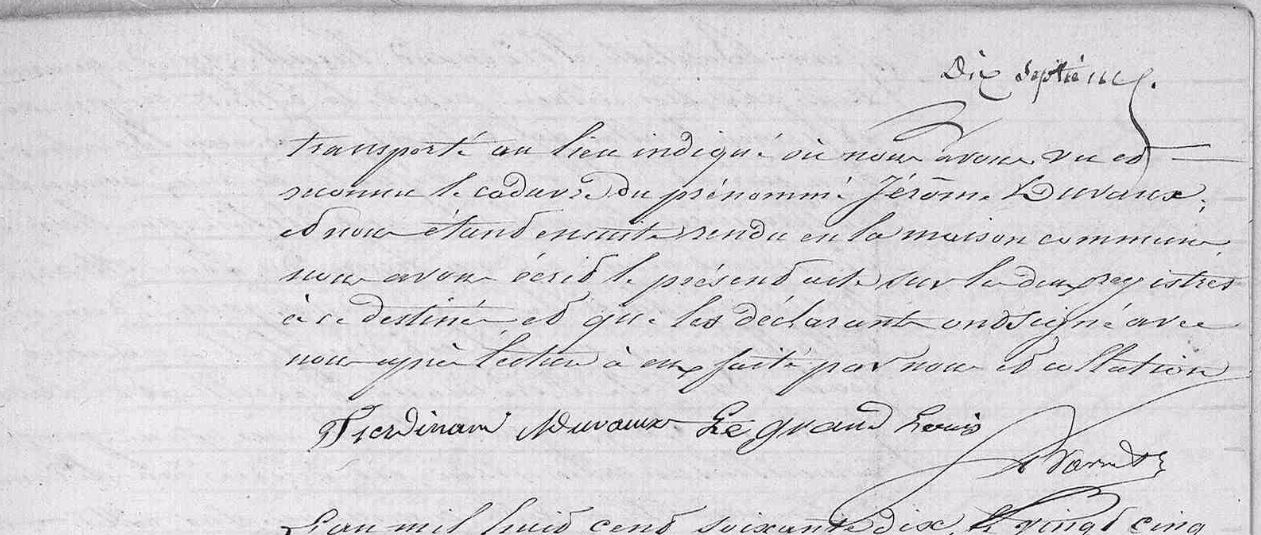 Dix Septième
transporté au lieu indiqué où nous avons vu et
reconnu le cadavre du prénommé Jérôme Duvaux,
et nous étant ensuite rendu en la maison commune
nous avons écrit le présent acte sur les deux registres
à ce destinés et que les déclarants ont signé avec
nous après lecture à eux faite par nous et collation
Ferdinand Duvaux Le grand Louis
L'an mil huit cent soixante dix, le vingt cinq